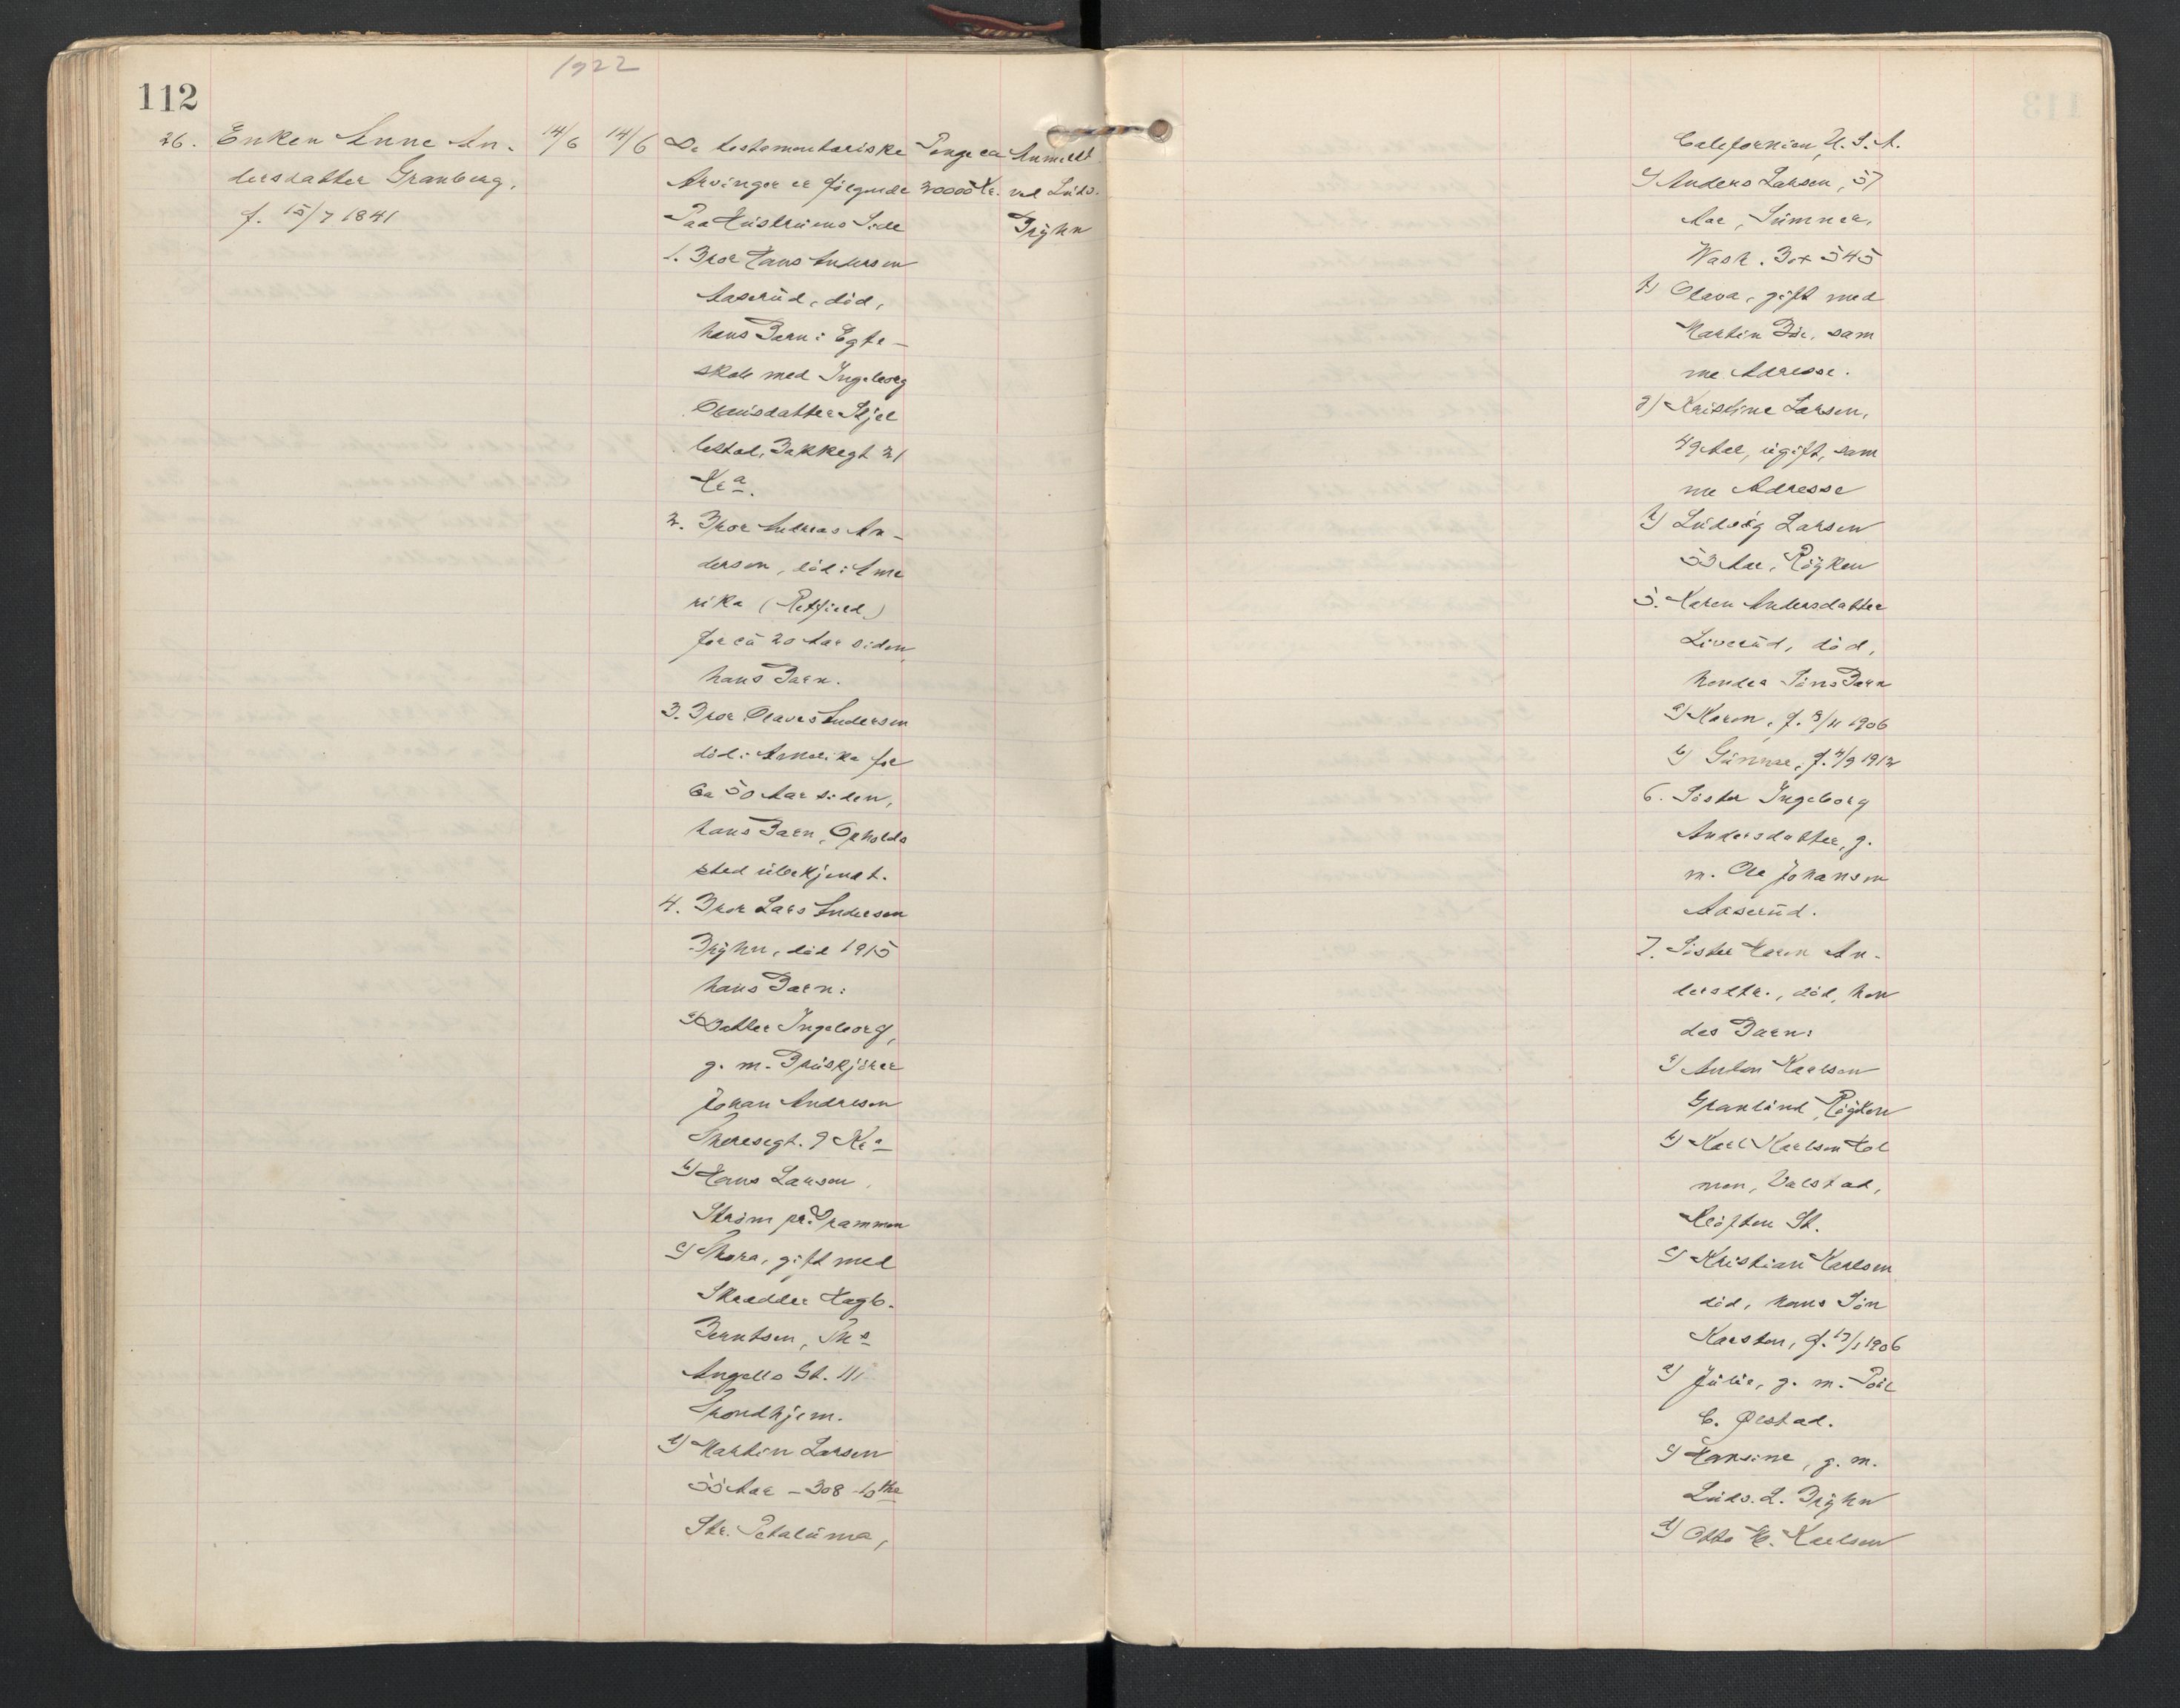 1922
112
26. Enken Anne An-
dersdatter Granberg,
f. 15/7 1841
14/6 14/6
De testamentariske
Arvinger er følgende
Paa Hustruens Side
1. Bror Hans Andersen
Aaserud, död,
hans Barn i Egte-
skab med Ingeborg
Olausdatter Skjel
lestad, Bakkegt 21
Kr a.
2. Bror Andreas An-
dersen, död i Ame
rika
for ca 20 Aar siden,
hans Barn.
3. Bror Olaves Andersen
död i Amerika for
ca 50 Aar siden,
hans Barn, Opholds
sted ubekjendt.
4. Bror Lars Andersen
Bryhn, död 1915
hans Barn:
a) Datter Ingeborg,
g. m. Bruskjörer
Johan Andresen
Theresegt. 9 Kr a
b) Hans Larsen,
Ström pr. Drammen
c) Thora, gift med
Skrædder Hagb.
Berntsen, Ths
Angells Gt. 11
Trondhjem.
d) Martin Larsen
55 Aar – 308 – 10the
Str. Petaluma,
Penge ca
30000 Kr.
Anmeldt
ved Ludv.
Bryhn
Californien, U. S. A.
e) Anders Larsen, 57
Aar, Sumner,
Wash. Box 545
f) Olava, gift med
Martin Bøe, sam
me Adresse.
g) Kristine Larsen,
49 Aar, ugift, sam
me Adresse
h) Ludvig Larsen
53 Aar, Röyken
5. Karen Andersdatter
Liverud, död,
hendes Söns Barn
a) Karen, f. 9/11 1906
b) Gunnar, f. 4/9 1912
6. Söster Ingeborg
Andersdatter, g.
m. Ole Johansen
Aaserud.
7. Söster Karen An-
dersdtr., död, hen
des Barn:
a) Anton Karlsen
Granlund, Röyken
b) Karl Karlsen Hol
men, Valstad,
Klöften St.
c) Kristian Karlsen
död, hans Sön
Karsten, f. 13/1 1906
d) Julie, g. m. Poul
C. Ølstad.
e) Hansine, g. m.
Ludv. L. Bryhn
d) Otto K. Karlsen